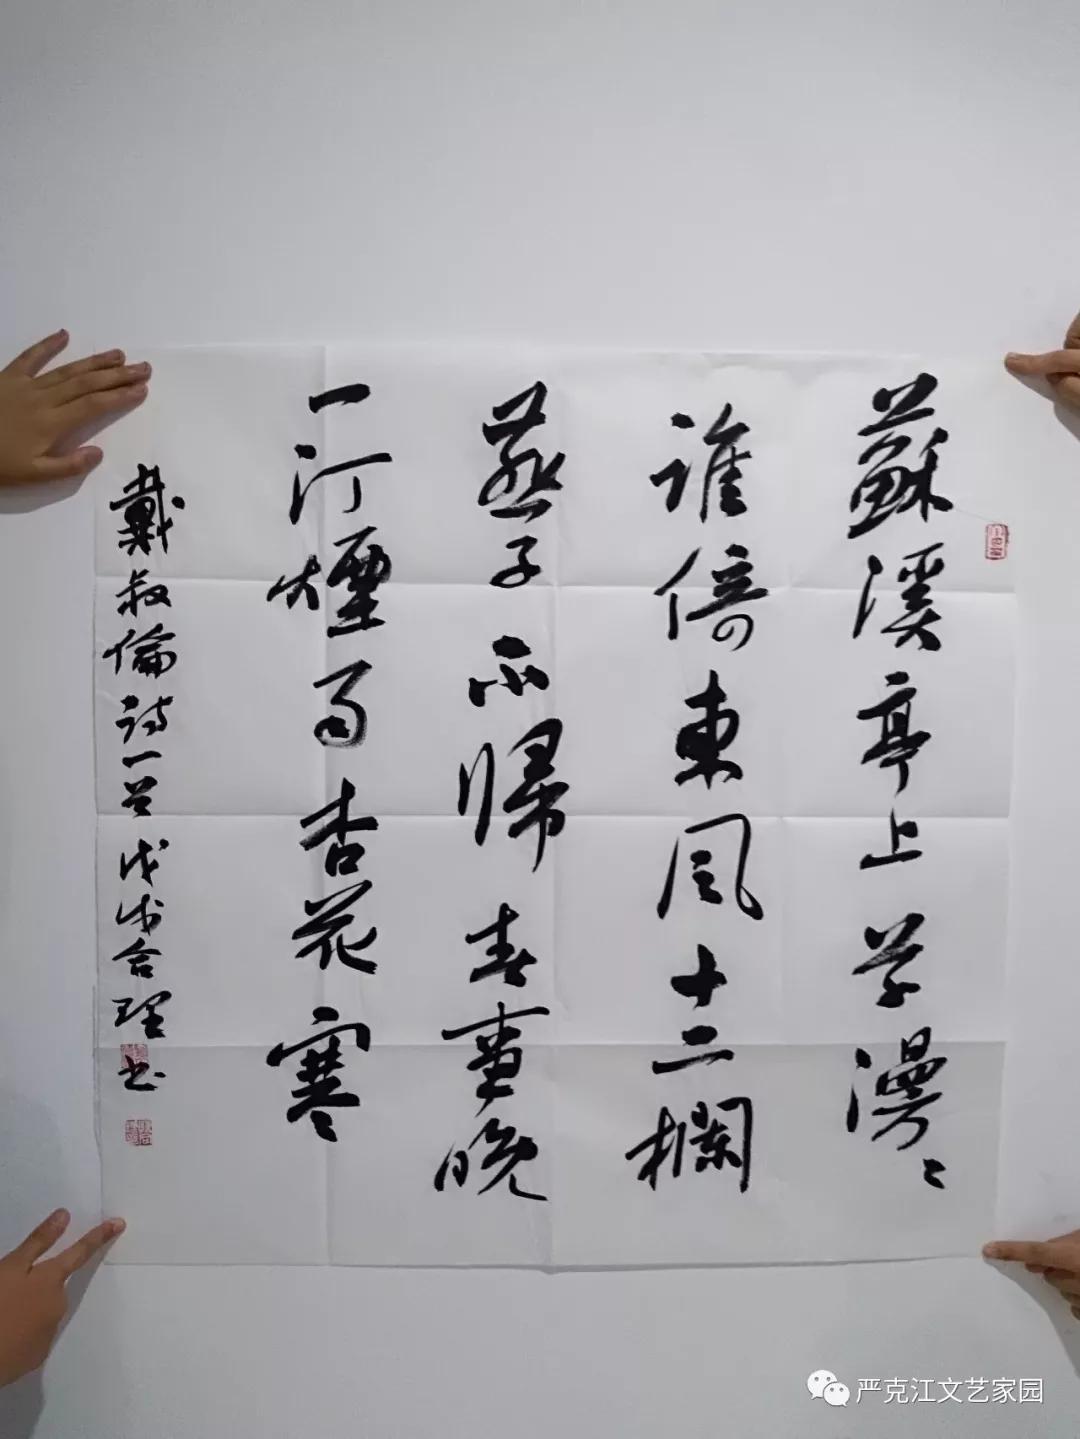 蘇溪亭上草漫〻
誰倚東風十二欄
燕子不歸春事晚
一汀煙雨杏花寒
戴叔倫詩一首戊戌合理书
严克江文艺家园